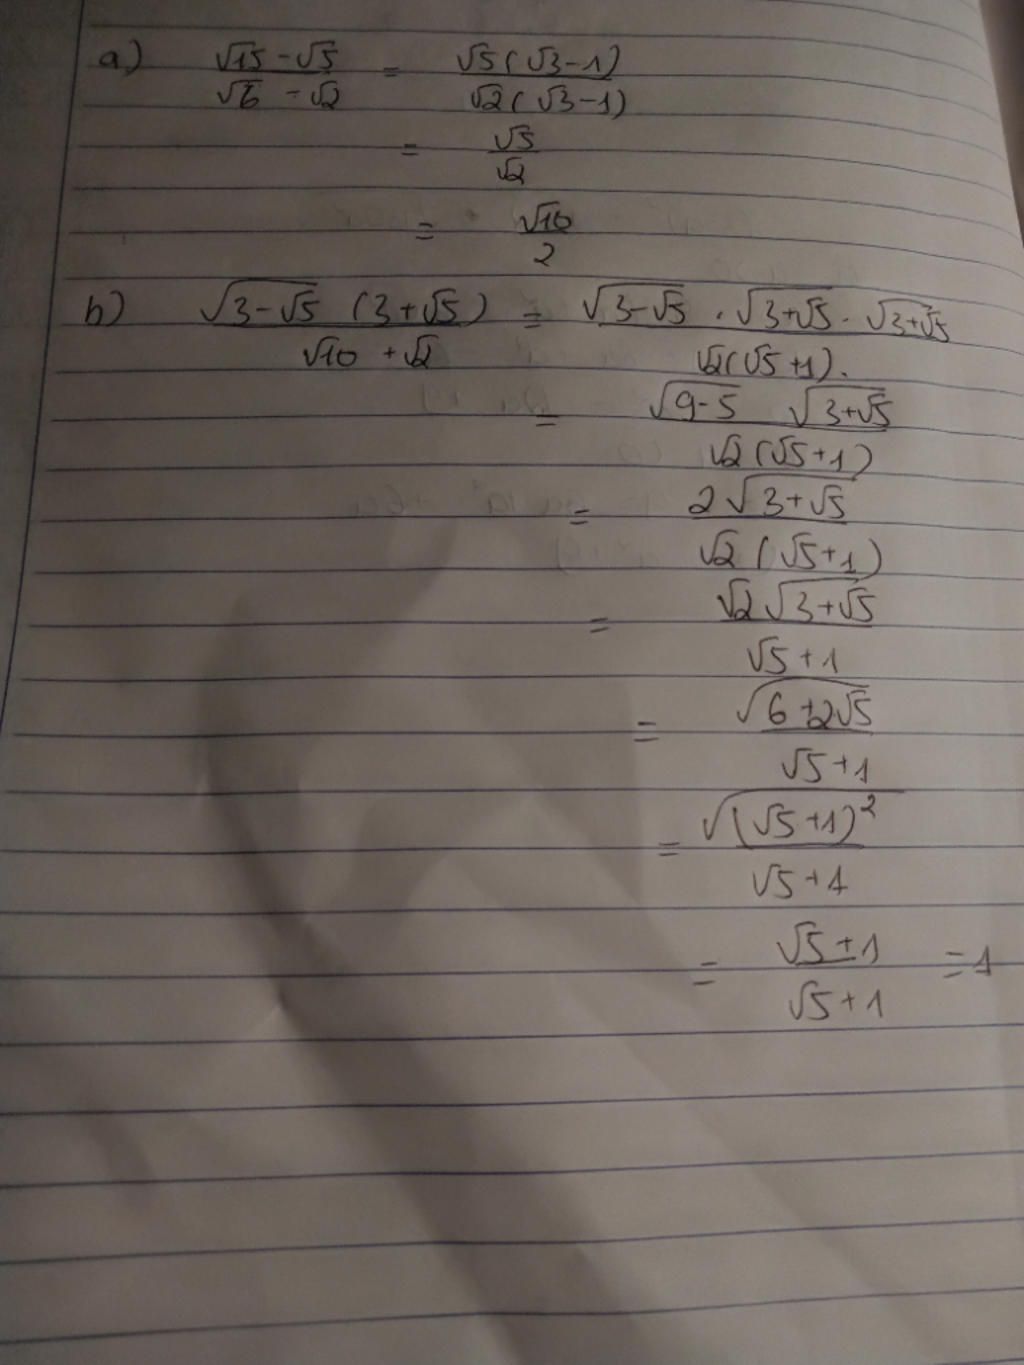 a) (√15 - √5)/(√6 - √2) = √5(√3-1)/√2(√3-1)
= √5/√2
= √10/2
b) √(3-√5) (3+√5)/(√10 + √2) = √(3-√5) · √(3+√5) · √(3+√5)/√2(√5+1).
= √(9-5) √(3+√5)/√2(√5+1)
= 2√(3+√5)/√2(√5+1)
= √2√(3+√5)/(√5+1)
= √(6+2√5)/(√5+1)
= √((√5+1)²)/(√5+1)
= (√5+1)/(√5+1) = 1